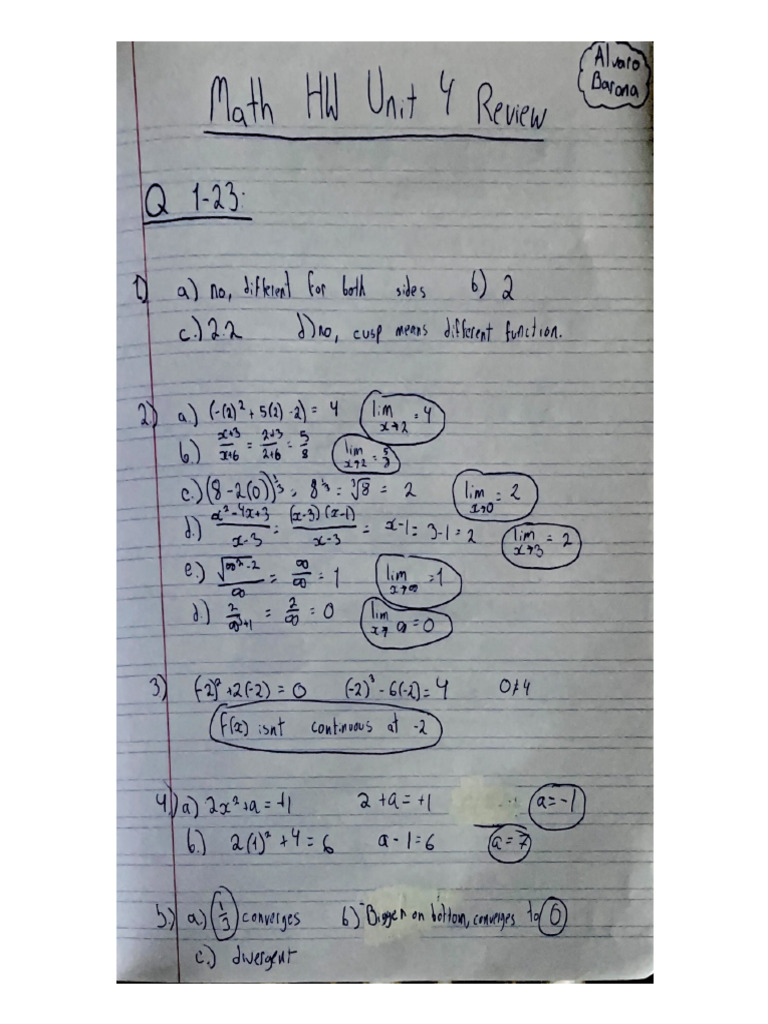 Alvaro
Barona
Math HW Unit 4 Review
Q 1-23:
1) a) no, different for both sides b) 2
c.) 2.2 d) no, cusp means different function.
2.) a.) (-(2)² + 5(2) - 2) = 4 lim x→2 = 4
b.) x+3/x+6 = 2+3/2+6 = 5/8 lim x→2 = 5/8
c.) (8-2(0))^1/3 = 8^1/3 = ³√8 = 2 lim x→0 = 2
d.) x²-4x+3/x-3 = (x-3)(x-1)/x-3 = x-1 = 3-1 = 2 lim x→3 = 2
e.) √∞²-2/∞ = ∞/∞ = 1 lim x→∞ = 1
d.) 2/∞+1 = 2/∞ = 0 lim x→ = 0
3) (-2)² + 2(-2) = 0 (-2)³ - 6(-2) = 4 0≠4
f(x) isnt continuous at -2
4.) a) 2x² + a = +1 2 + a = +1 a = -1
b.) 2(1)² + 4 = 6 a - 1 = 6 a = 7
5.) a.) 1/3 converges b) Bigger on bottom, converges to 0
c.) divergent